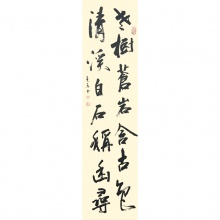 老樹蒼岩含古色
清溪白石稱幽尋